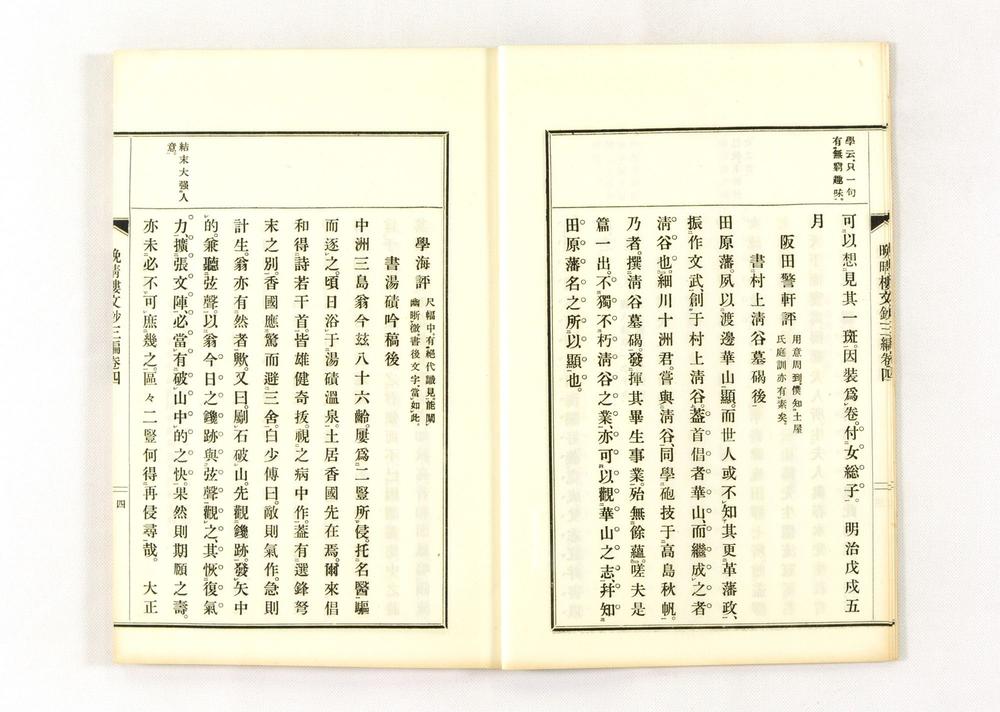 學云、只一句
有無窮趣味、
可以想見其一斑。因裝爲卷。付女総子。 明治戊戌五
月
阪田警軒評 用意周到、僕知土屋
氏庭訓亦有素矣。
書村上淸谷墓碣後
田原藩。夙以渡邊華山顯。而世人或不知其更革藩政、
振作文武、創于村上淸谷。蓋首倡者華山、而繼成之者
淸谷也。細川十洲君。嘗與淸谷、同學砲技于高島秋帆。
乃者撰淸谷墓碣。發揮其畢生事業。殆無餘蘊。嗟夫是
篇一出。不獨不朽淸谷之業、亦可以觀華山之志、幷知
田原藩名之所以顯也。
學海評 尺幅中、有絕代識見、能闡
幽晰微、書後文字、當如此、
書湯磧吟稿後
中洲三島翁今玆八十六齡。屢爲二豎所侵。托名醫驅
而逐之。頃日浴于湯磧溫泉。土居香國先在焉。爾來倡
和得詩若干首。皆雄健奇拔。視之病中作。蓋有選鋒弩
末之別。香國應驚而避三舍。白少傅曰。敵則氣作。急則
計生。翁亦有然者歟。又曰。劚石破山。先觀鑱跡。發矢中
的。兼聽弦聲。以翁今日之鑱跡與弦聲觀之、其恢復氣
力、擴張文陣、必當有破山中的之快。果然則期頤之壽。
亦未必不可庶幾之。區々二豎何得再侵尋哉。 大正
結末大强人
意。
晩晴樓文鈔三編卷四
四
晩晴樓文鈔三編卷四